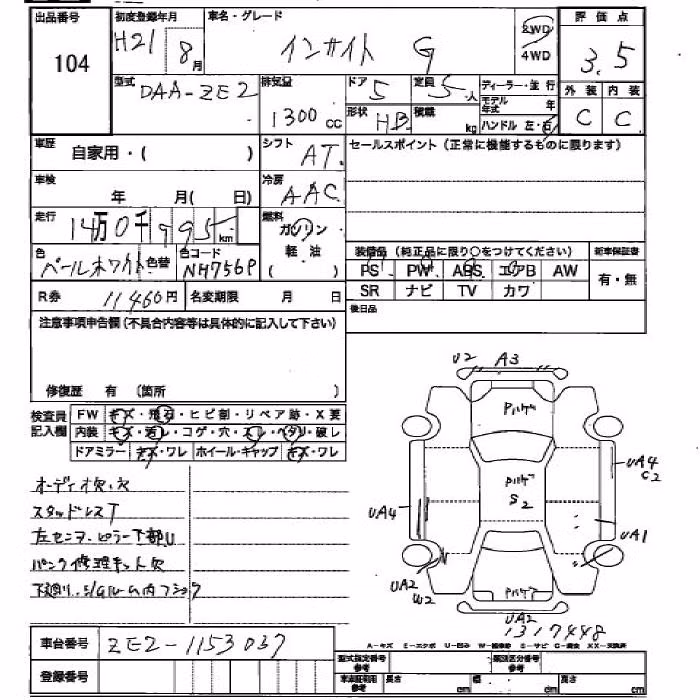 出品番号 初度登録年月 車名・グレード 評価点
104 H21 8月 インサイト G 2WD 4WD 3.5
型式 DAA-ZE2 排気量 1300cc ドア 5 定員 5人 ディーラー・並行 外装 内装
形状 HB 積載 kg モデル年式 年 C C
ハンドル 左・右
車歴 自家用・( ) シフト AT セールスポイント(正常に機能するものに限ります)
車検 年 月( 日) 冷房 AAC
走行 14万0千995km 燃料 ガソリン
軽油
( )
色 パールホワイト 色替 色コード NH756P 装備品(純正品に限り○をつけてください) 新車保証書
PS PW ABS エアB AW 有・無
R券 11460円 名変期限 月 日 SR ナビ TV カワ
注意事項申告欄(不具合内容等は具体的に記入して下さい) 後日品
修復歴 有 (箇所 )
検査員記入欄 FW キズ・飛石・ヒビ割・リペア跡・X要
内装 キズ・汚レ・コゲ・穴・スレ・ヘタリ・破レ
ドアミラー キズ・ワレ ホイール・キャップ キズ・ワレ
オーディオ欠.欠
スタッドレスT
左センターピラー下部U
パンク修理キット欠
U2 A3
UA4
C2
UA4
S2
UA1
UA2
W2
UA2
1317448
車台番号 ZE2-1153037
A-キズ E-エクボ U-凹み
登録番号 型式指定番号 参考 類別区分番号 参考
車庫証明用 参考 長さ cm 幅 cm 高さ cm